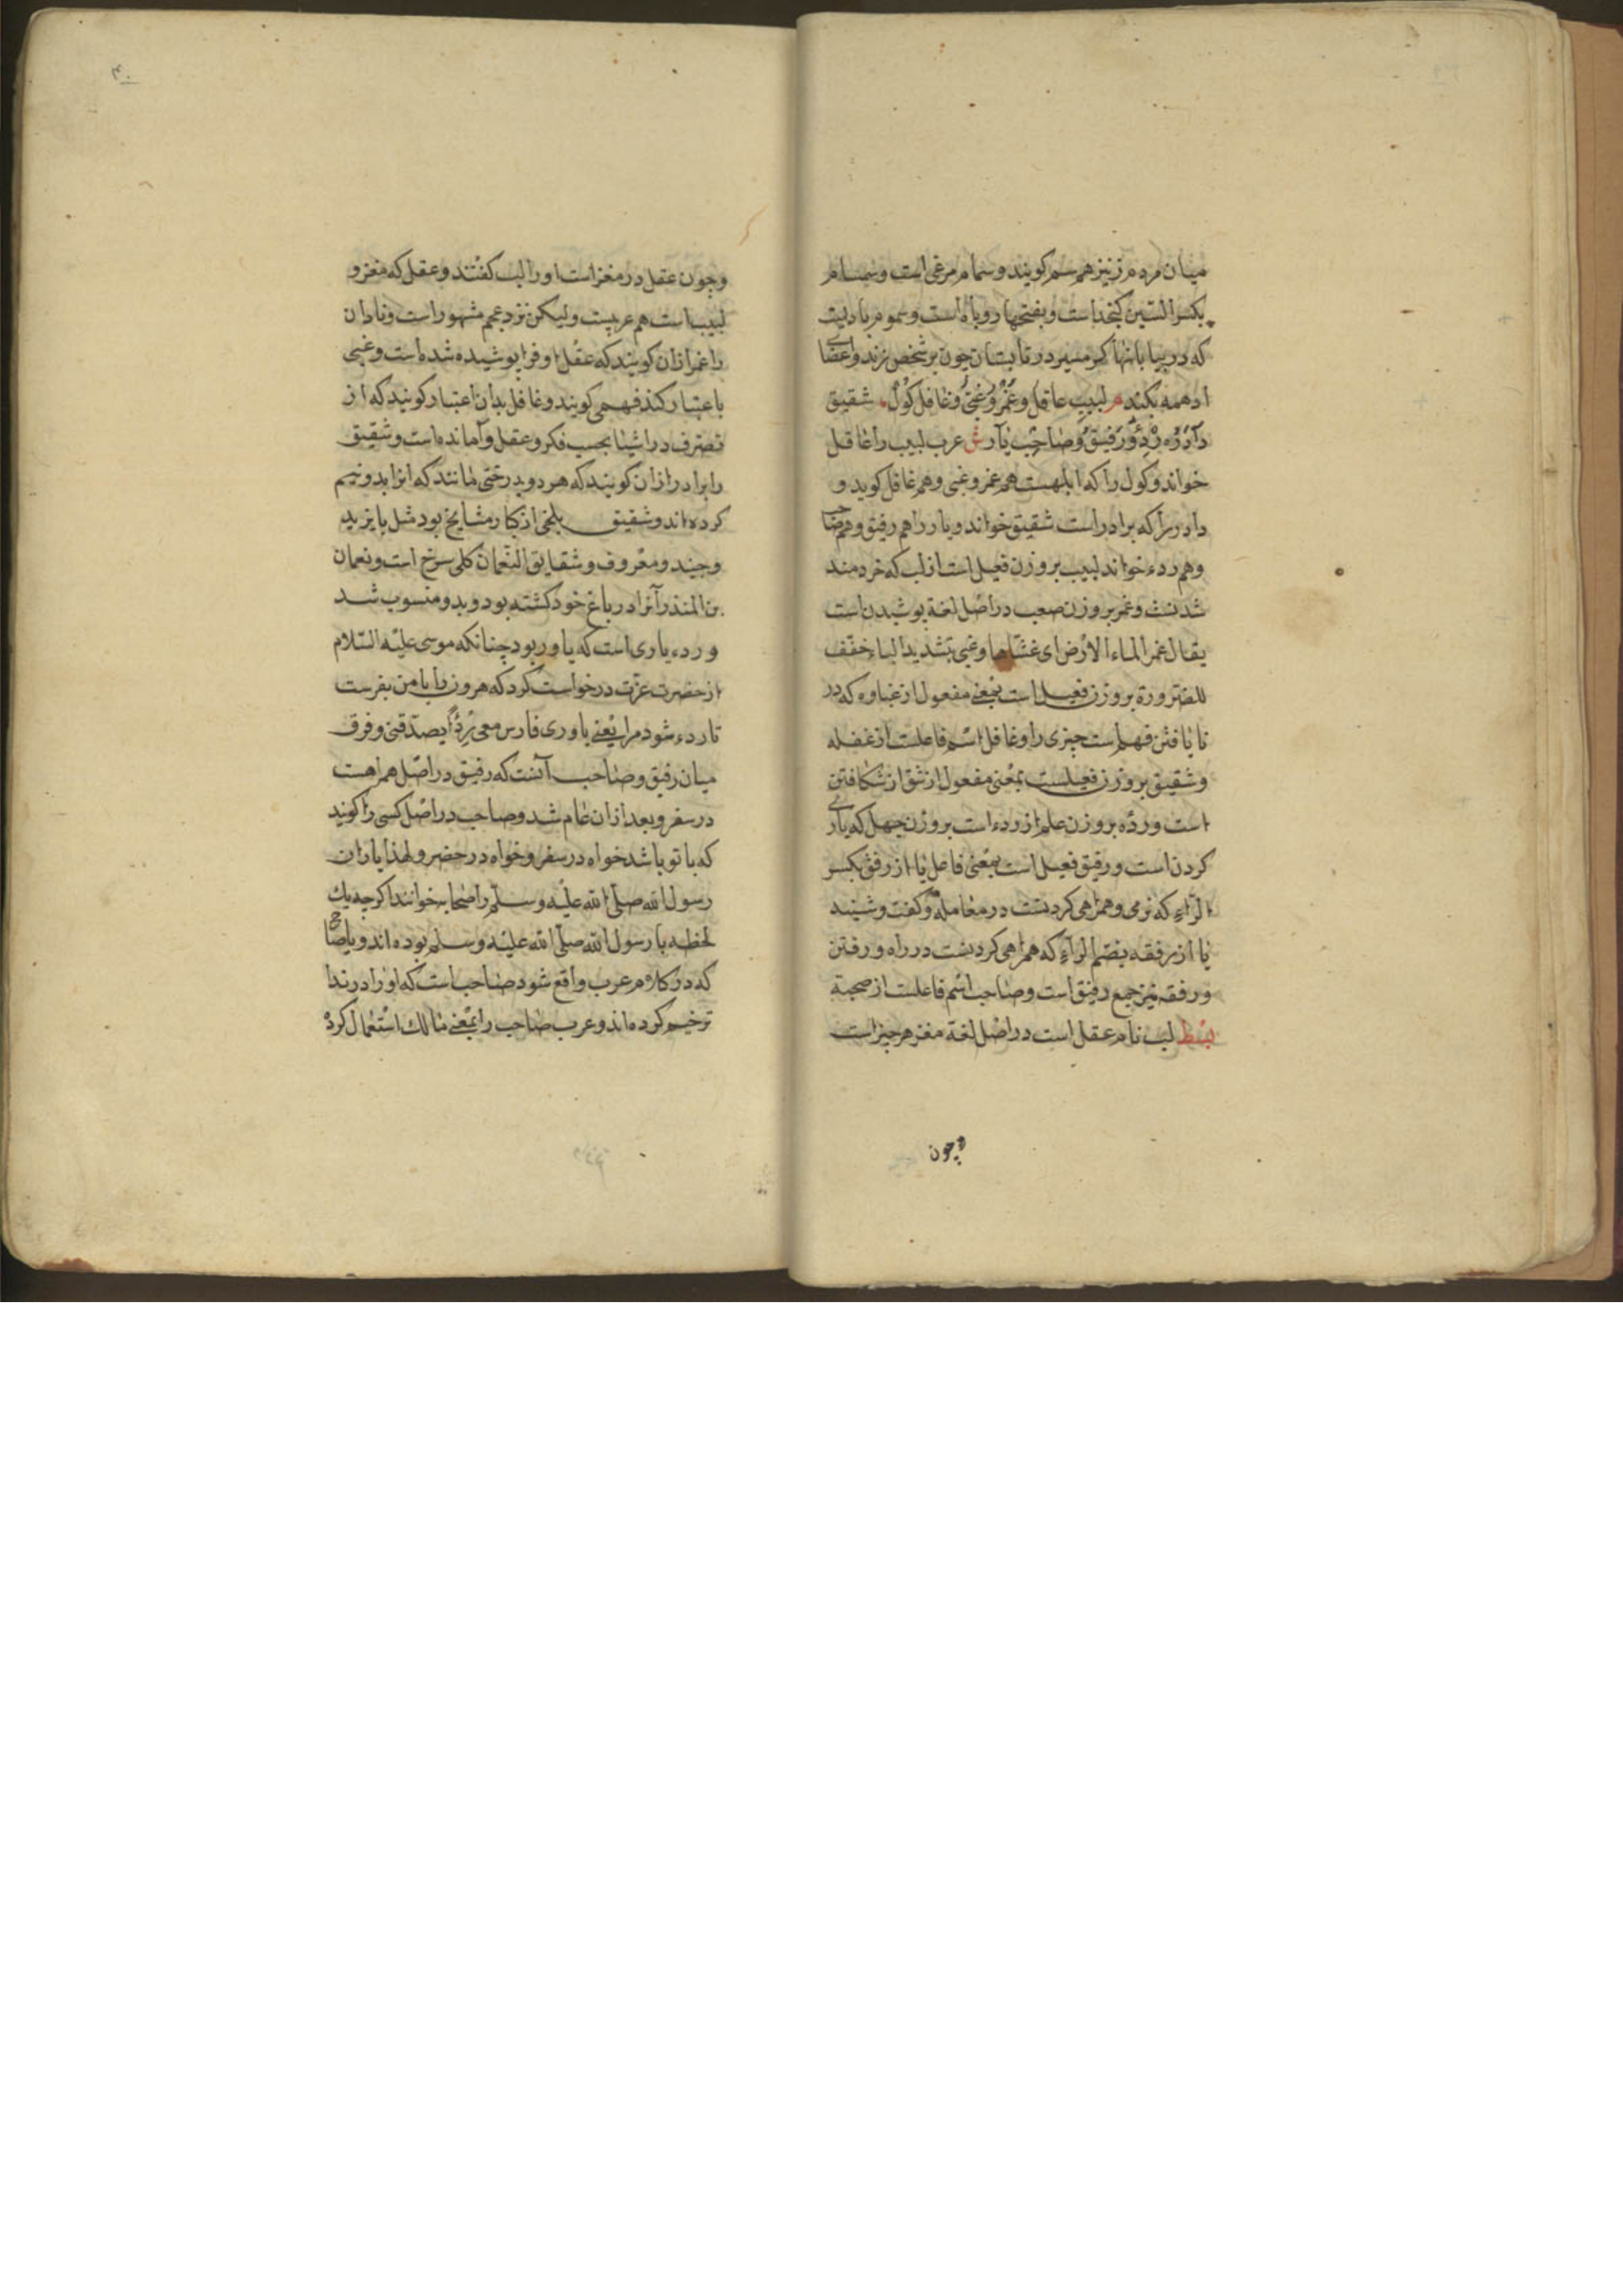 میان مردم زنیز هم سم کویند و سمام مرغی است و سمام
بکسر السّین کنجداست و بفتحها روباه است و سموم بادیست
که در بیابانها کرمسیر در تابستان چون بر شخص زند و اعضای
او همه بکند م لبیب عاقل و غُمْرٌ و غبیٌّ و غافل کَوْل شقیق
دآدَرْ رِدْءٌ و رَفیق و صاحب یآر ش عرب لبیب را عاقل
خواند و کول را که ابلهست هم غمر و غبی و هم غافل کوید و
دادر را که برادر است شقیق خواند و یار را هم رفیق و هم صاحب
و هم ردء خواند لبیب بر وزن فعیل است از لب که خردمند
شدنست و غمر بر وزن صعب در اصل لغة پوشیدن است
یقال غمر الماء الارض ای غشّاها و غبی بتشدید الیا خفّف
للضّرورة بر وزن فعیل است بمعنی مفعول از غباوه که در
نایافتن فهم است چیزی را و غافل اسم فاعلست از غفله
و شقیق بر وزن فعیلست بمعنی مفعول از شق از شکافتن
است و ردْء بر وزن علم از ردء است بر وزن جهل که یاری
کردن است و رفیق فعیل است بمعنی فاعل یا از رفق بکسر
الرّاء که نرمی و همراهی کردنست در معامله و کفت و شنید
یا از رفقه بضم الرآء که همراهی کردنست در راه و رفتن
و رفقه نیز جمع رفیق است و صاحب اسم فاعلست از صحبة
بسط لب نام عقل است در اصل لغة مغز هر چیز است
وچون
۴۰
وچون عقل در مغز است او را لب کفتند و عقل که مغز و
لبیب است هم عربیست ولیکن نزد عجم مشهور است و نادان
را غمر از ان کویند که عقل او فرا پوشیده شده است و غبی
باعتبار کند فهمی کویند و غافل بدان اعتبار کویند که از
تصرف در اشیا بحسب فکر و عقل وآمانده است و شقیق
را برادر از ان کویند که هر دو بدرختی مانند که انرا بدو نیم
کرده اند و شقیق بلخی از کبار مشایخ بود مثل بایزید
و جنید و معروف و شقایق النّعمان کلی سرخ است و نعمان
بن المنذر آنرا در باغ خود کشته بود و بدو منسوب شد
و ردء یاری است که یاور بود چنانکه موسی علیه السّلام
از حضرت عزّت درخواست کرد که هرون را با من بفرست
تا ردء شود مرا یعنی یاوری فارس معی رِدْءًا یصدّقنی و فرق
میان رفیق و صاحب آنست که رفیق در اصل همراهست
در سفر و بعد از ان عام شد و صاحب در اصل کسی را کویند
که با تو باشد خواه در سفر و خواه در حضر و لهذا یاران
رسول الله صلّی الله علیه و سلّم را صحابه خوانند اکرچه یك
لحظه با رسول الله صلّی الله علیه و سلم بوده اند و یا صاح
که در کلام عرب واقع شود صاحب است که او را در ندا
ترخیم کرده اند و عرب صاحب را بمعنی مالك استعمال کرده